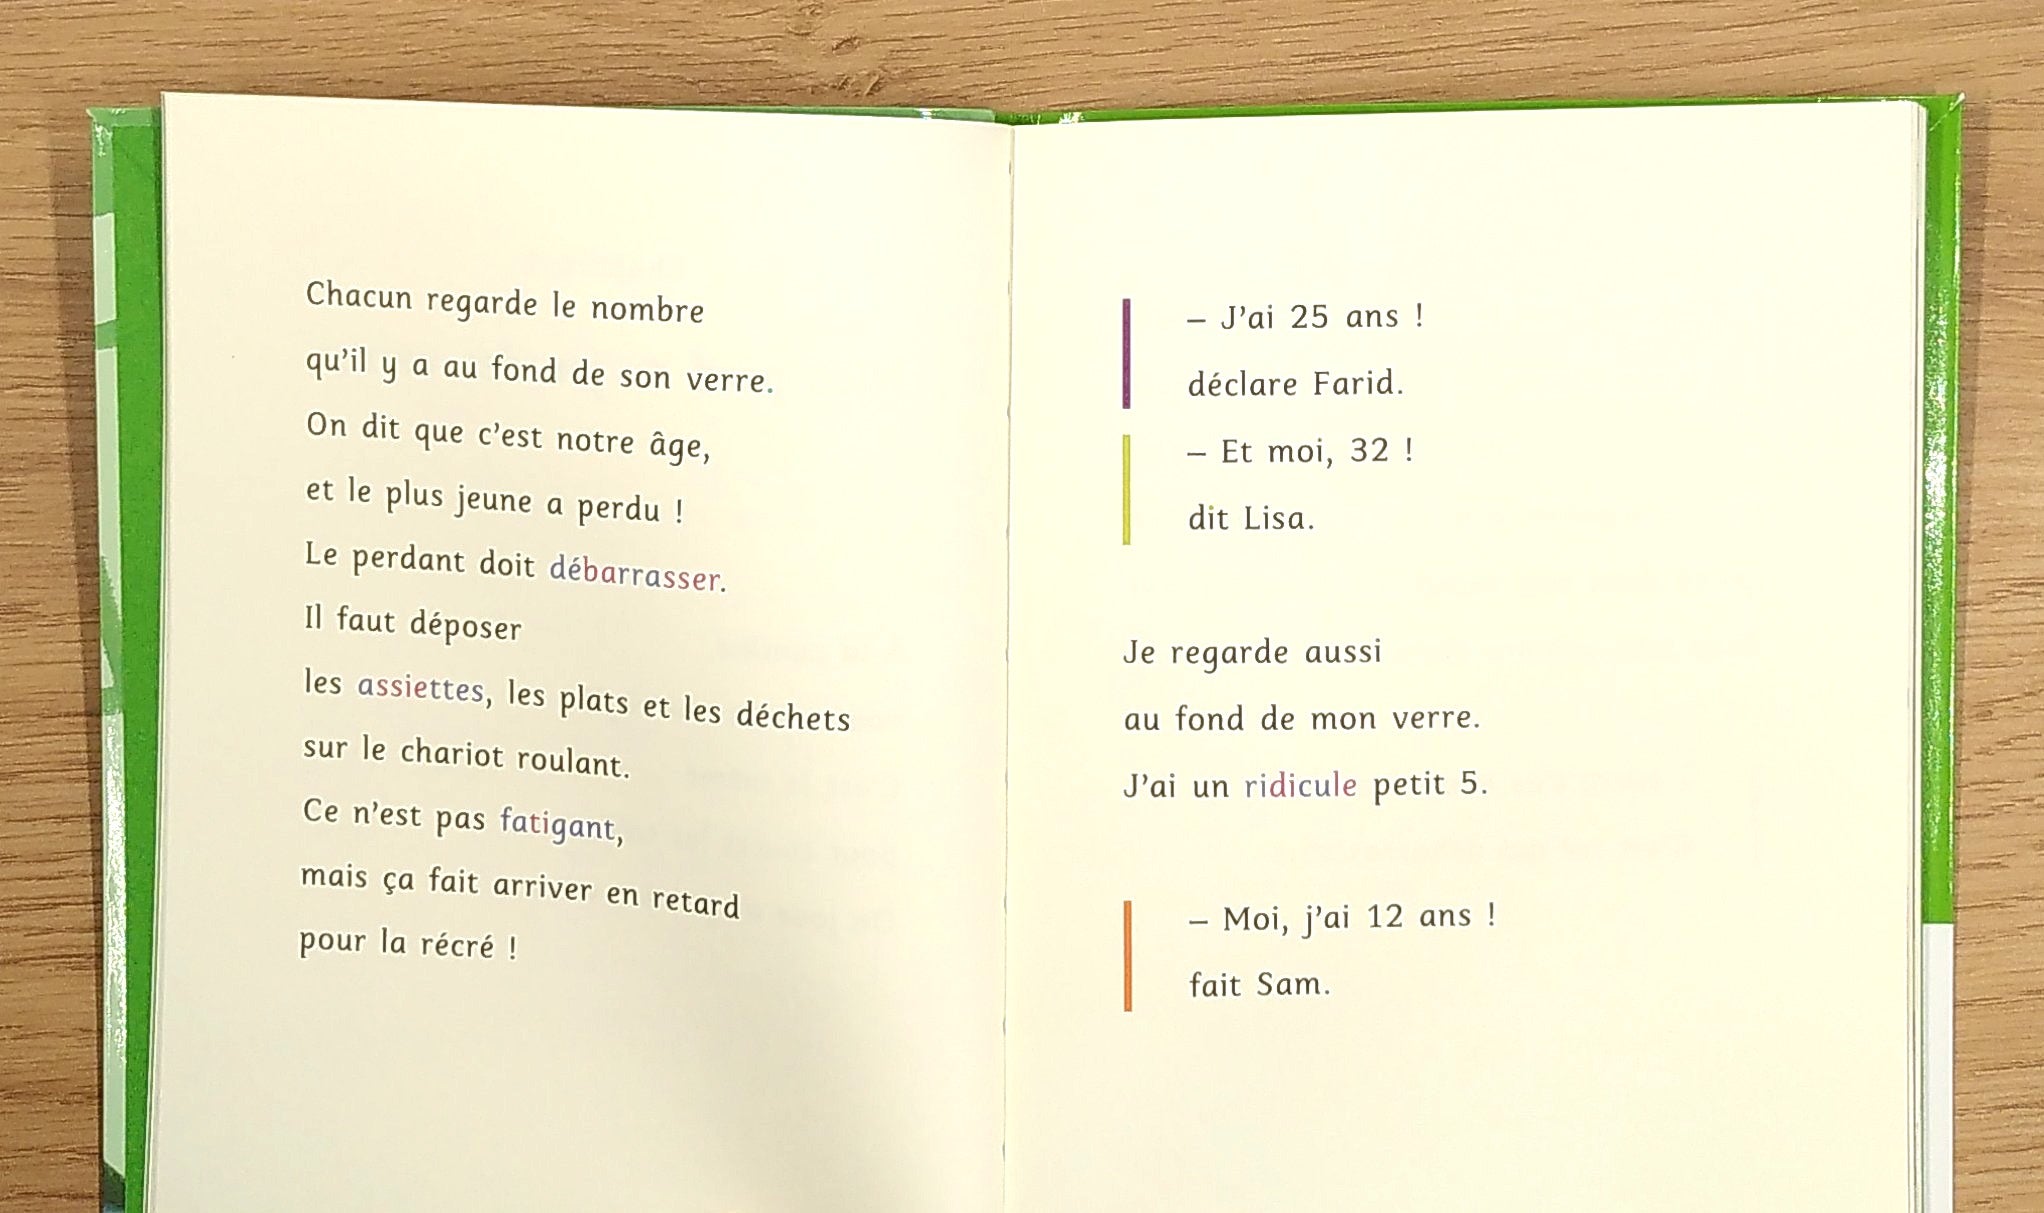 Chacun regarde le nombre
qu’il y a au fond de son verre.
On dit que c’est notre âge,
et le plus jeune a perdu !
Le perdant doit débarrasser.
Il faut déposer
les assiettes, les plats et les déchets
sur le chariot roulant.
Ce n’est pas fatigant,
mais ça fait arriver en retard
pour la récré !
– J’ai 25 ans !
déclare Farid.
– Et moi, 32 !
dit Lisa.
Je regarde aussi
au fond de mon verre.
J’ai un ridicule petit 5.
– Moi, j’ai 12 ans !
fait Sam.